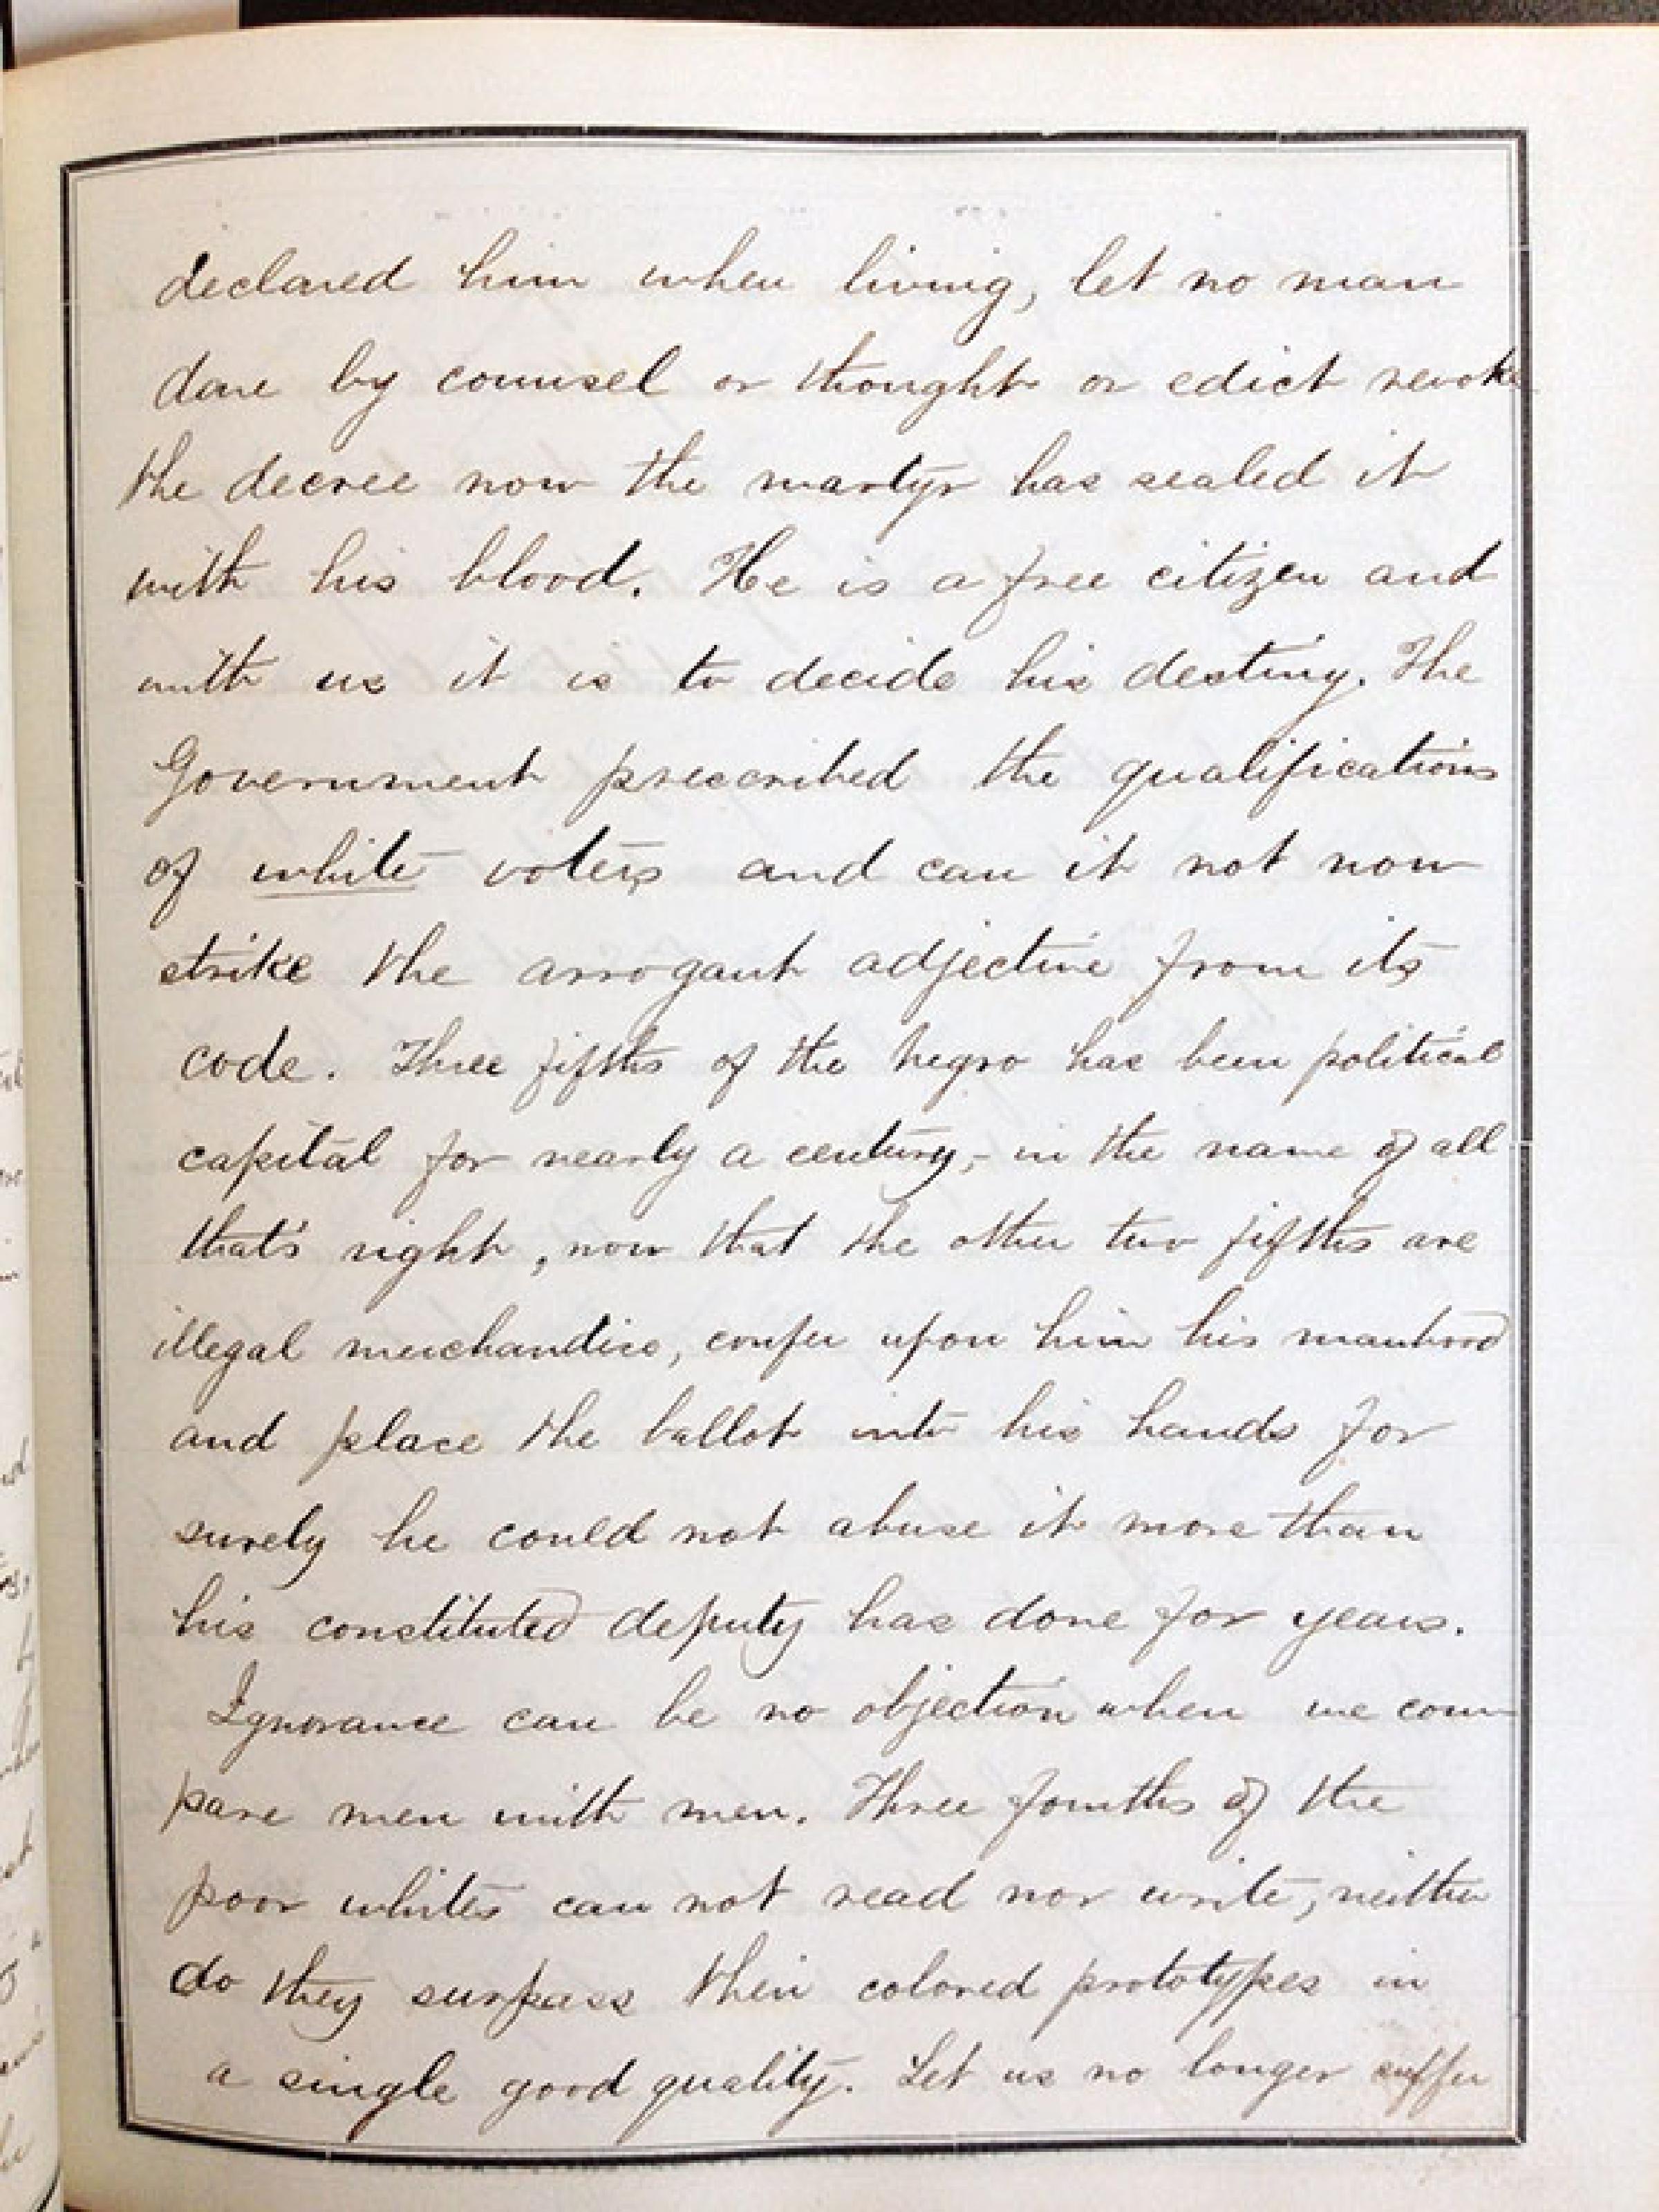 declared him when living, let no man
dare by counsel or thought or edict revoke
the decree now the martyr has sealed it
with his blood. He is a free citizen and
with us it is to decide his destiny. The
Government prescribed the qualifications
of white voters and can it not now
strike the arrogant adjective from its
code. Three fifths of the negro has been political
capital for nearly a century,- in the name of all
that's right, now that the other two fifths are
illegal merchandise, confer upon him his manhood
and place the ballot into his hands for
surely he could not abuse it more than
his constituted deputy has done for years.
Ignorance can be no objection when we com-
pare men with men. Three fourths of the
poor whites can not read nor write, neither
do they surpass their colored prototypes in
a single good quality. Let us no longer suffer